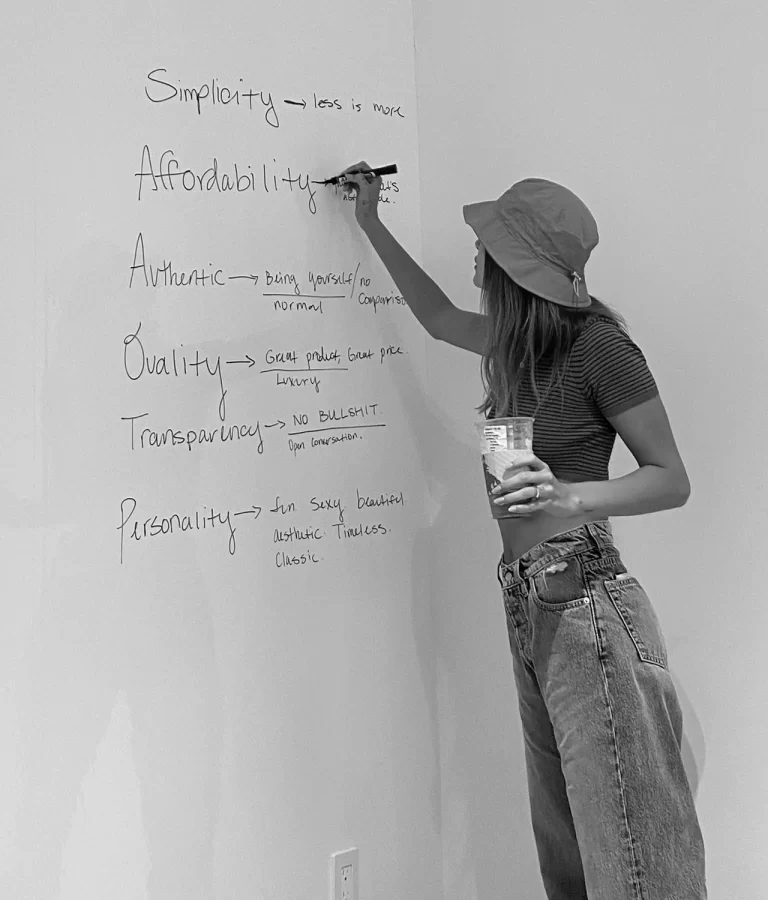 Simplicity → less is more
Affordability
Authentic → Being yourself/no
normal comparison
Quality → Great product, Great price.
Luxury
Transparency → NO BULLSHIT.
Open conversation.
Personality → fun sexy beautiful
aesthetic. Timeless.
Classic.